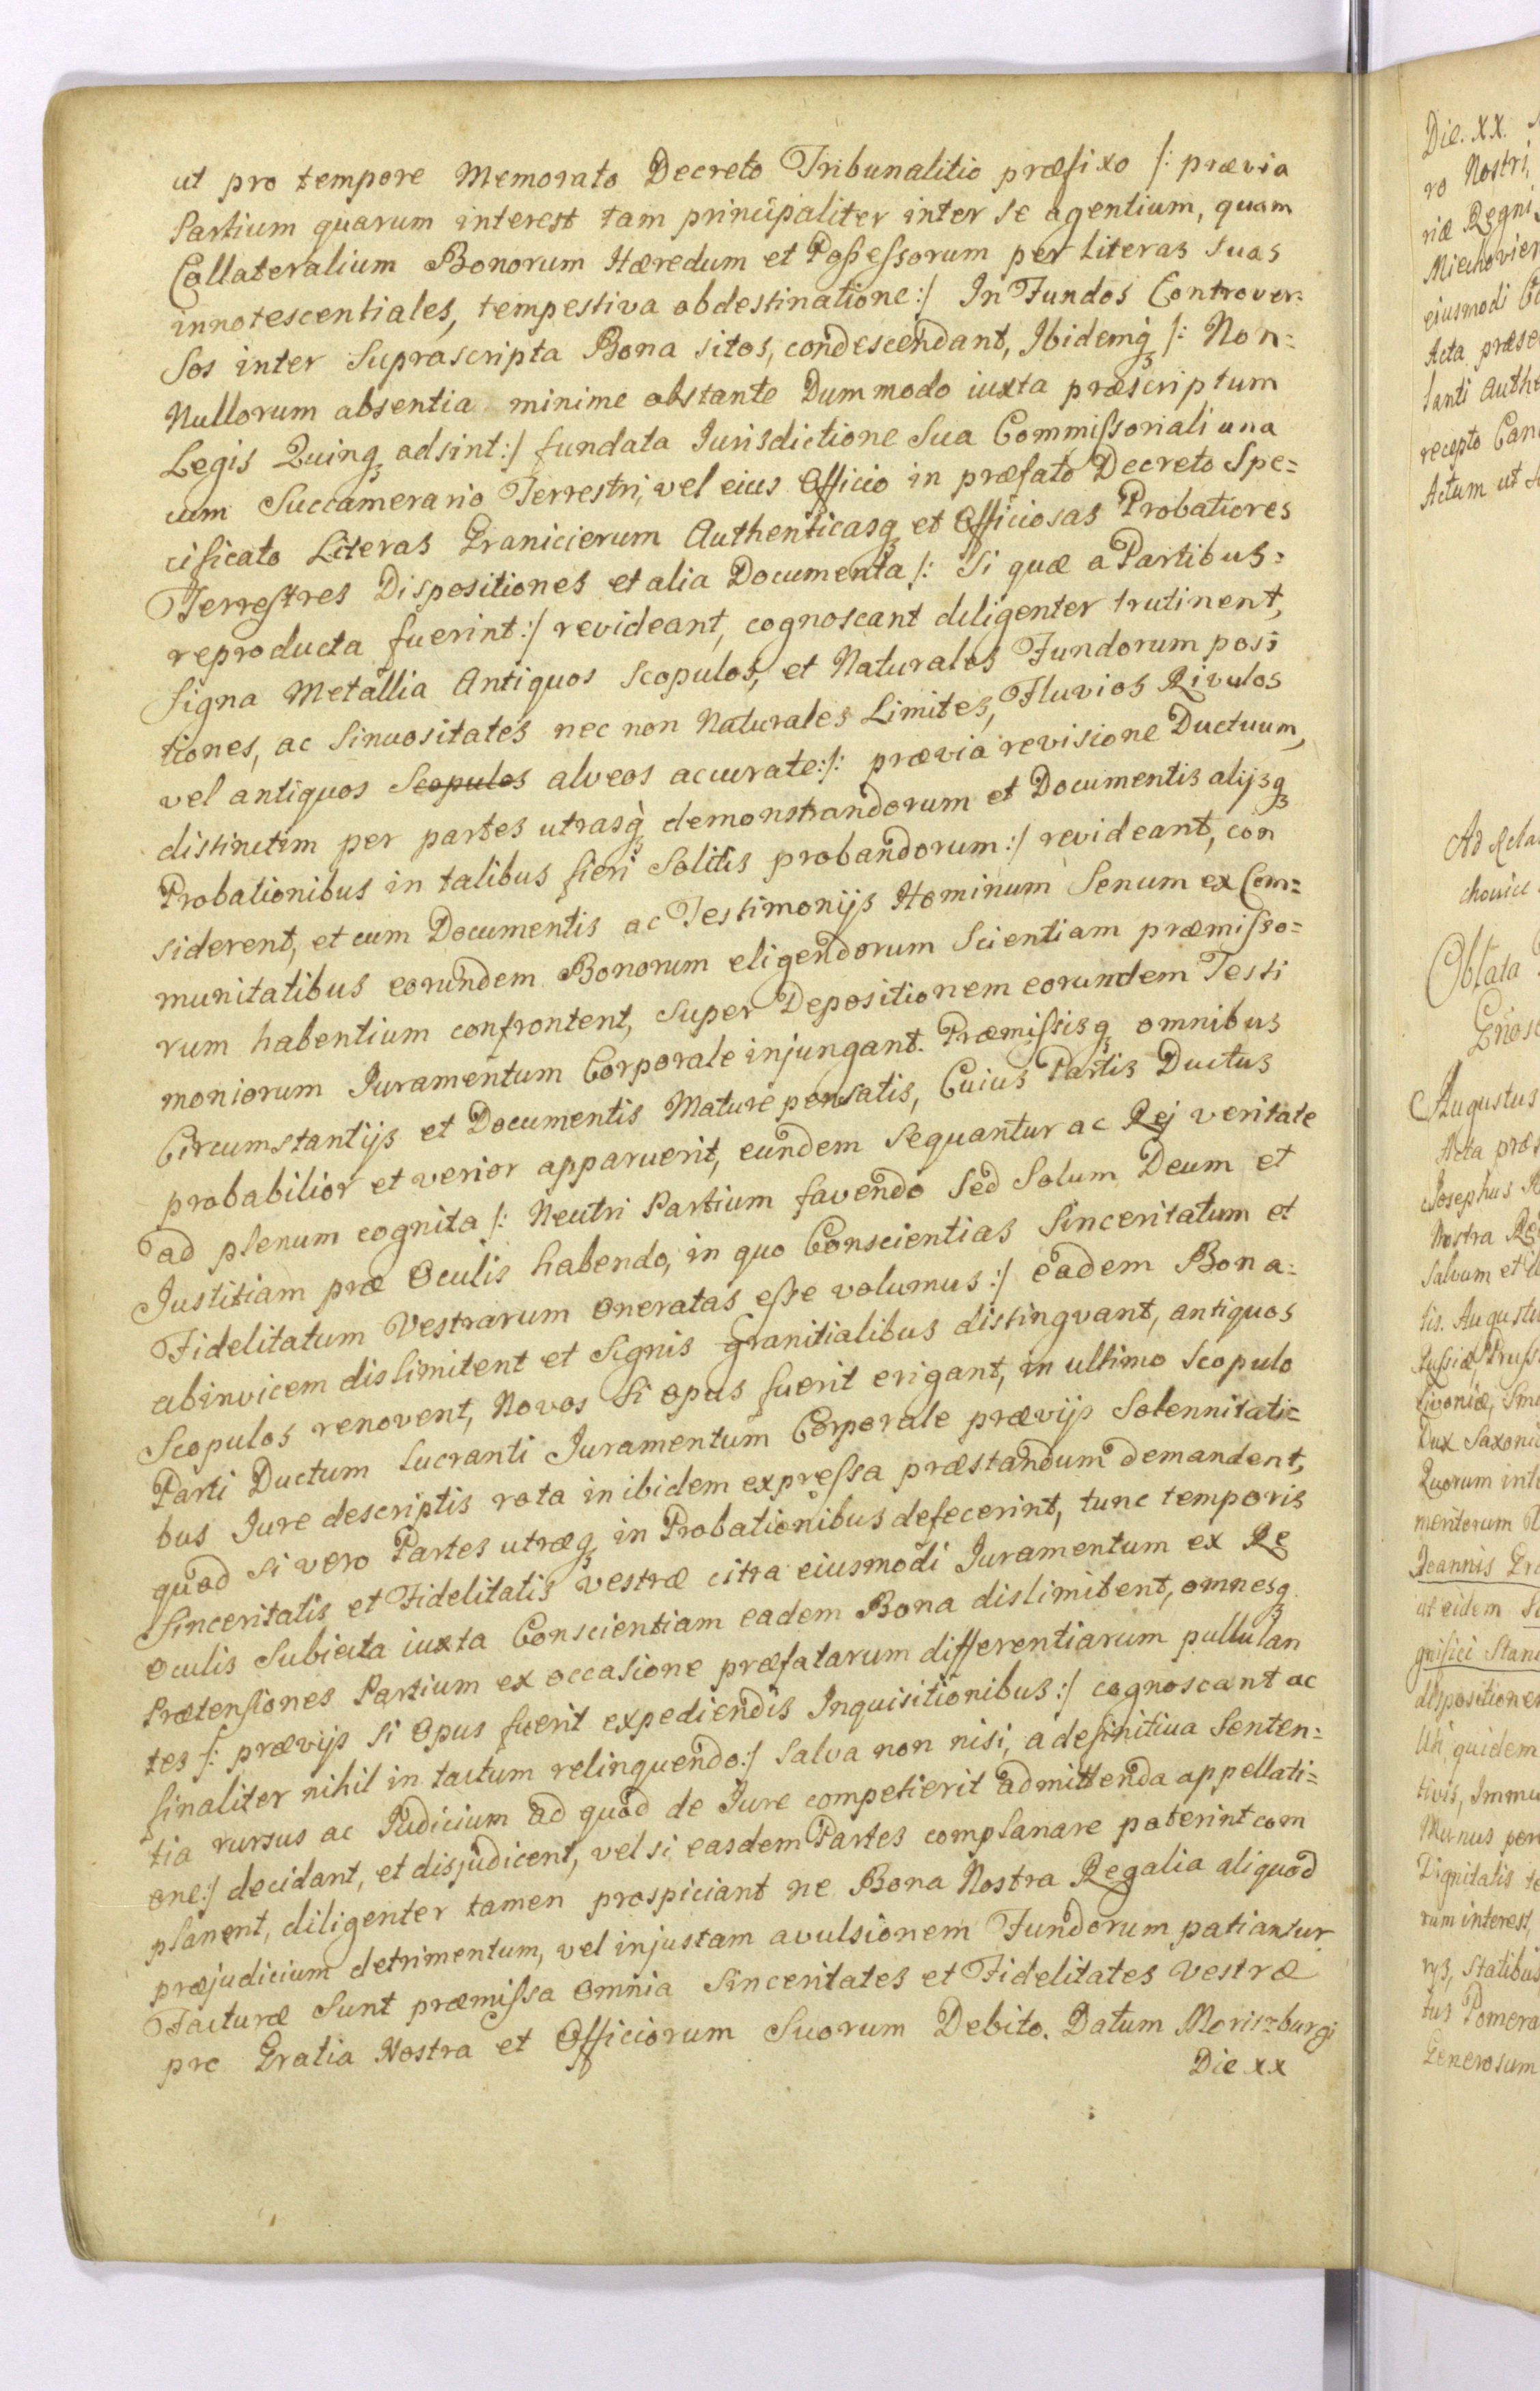 ut pro tempore Memorato Decreto Tribunalitio præfixo /: prævia
Partium quarum interest tam principaliter inter se agentium, quam
Collateralium Bonorum Hæredum et Poſseſsorum per Literas Suas
innotescentiales, tempestiva obdestinatione :/ In Fundos Controver=
Sos inter Suprascripta Bona sitos, condescendant, Ibidemq̨ /: Non=
Nullorum absentia minime obstante Dummodo iuxta præscriptum
Legis Quinq̨ adsint :/ fundata Jurisdictione Sua Commiſsoriali una
cum Succamerario Terrestri, vel eius Officio in præfato Decreto Spe=
cificato Literas Granicierum Authenticasq̨ et Officiosas Probatiores
Terreſtres Dispositiones et alia Documenta /: Si quæ a Partibus=
reproducta fuerint :/ revideant, cognoscant diligenter trutinent,
Signa Metallia Antiquos Scopulos, et Naturales Fundorum posi
tiones, ac Sinuositates nec non Naturales Limites, Fluvios Rivulos
vel antiquos Scopulos alveos accurate :/: prævia revisione Ductuum,
distinctim per partes utrasq̨ demonstrandorum et Documentis alijsq̨
Probationibus in talibus fieri Solitis probandorum :/ revideant, con
siderent, et cum Documentis ac Testimonijs Hominum Senum ex Com=
munitatibus eorundem Bonorum eligendorum Scientiam præmiſso=
rum habentium confrontent, Super Depositionem eorundem Testi
moniorum Juramentum Corporale injungant. Præmiſsisq̨ omnibus
Circumstantijs et Documentis Mature pensatis, Cuius Partis Ductus
probabilior et verior apparuerit, eundem Sequantur ac Rej veritate
ad plenum cognita /: Neutri Partium favendo Sed Solum Deum et
Justitiam præ Oculis habendo, in quo Conscientias Sinceritatum et
Fidelitatum Vestrarum Oneratas eſse volumus :/ eadem Bona=
abinvicem dislimitent et Signis granitialibus distingvant, antiquos
Scopulos renovent, Novos Si opus fuerit erigant, in ultimo Scopulo
Parti Ductum Lucranti Juramentum Corporale prævijs Solennitati=
bus Jure descriptis rota inibidem expreſsa præstandum demandent,
quod si vero Partes utræq̨ in Probationibus defecerint, tunc temporis
Sinceritatis et Fidelitatis vestræ citra eiusmodi Juramentum ex Re
Oculis Subiecta iuxta Conscientiam eadem Bona dislimitent, omnesq̨
Prætenſiones Partium ex occasione præfatarum differentiarum pullulan
tes /: prævijs Si Opus fuerit expediendis Inquisitionibus :/ cognoscant ac
finaliter nihil in tactum relinquendo :/ Salva non nisi, a definitiua Senten=
tia rursus ac Judicium ad quod de Jure competierit admittenda appellati=
one :/ decidant, et disjudicent, vel si easdem Partes complanare poterint com
planent, diligenter tamen prospiciant ne Bona Nostra Regalia aliquod
præjudicium detrimentum, vel injustam avulsionem Fundorum patiantur.
Facturæ Sunt præmiſsa Omnia Sinceritates et Fidelitates Vestræ
pro Gratia Nostra et Officiorum Suorum Debito. Datum Morisburgi
Die xx
Die. XX.
ro Nostri,
riæ Regni
eiusmodi
Acta
recepto
Actum ut
Oblata
Augustus
Acta
Josephus
Nostra
Salvum et
tis. Augustus
Dux Saxoniæ
Quorum
Joannis
ut eidem
gnifici
Uti quidem
tivis,
Munus
Dignitatis
rum interest,
Generosum